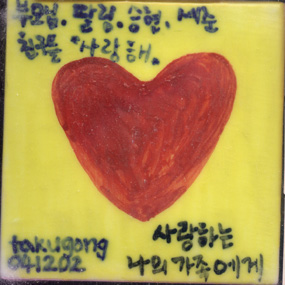 부모님. 딸림. 승현, 세준
친구들 사랑해.
takugong
041202
사랑하는
나의 가족에게